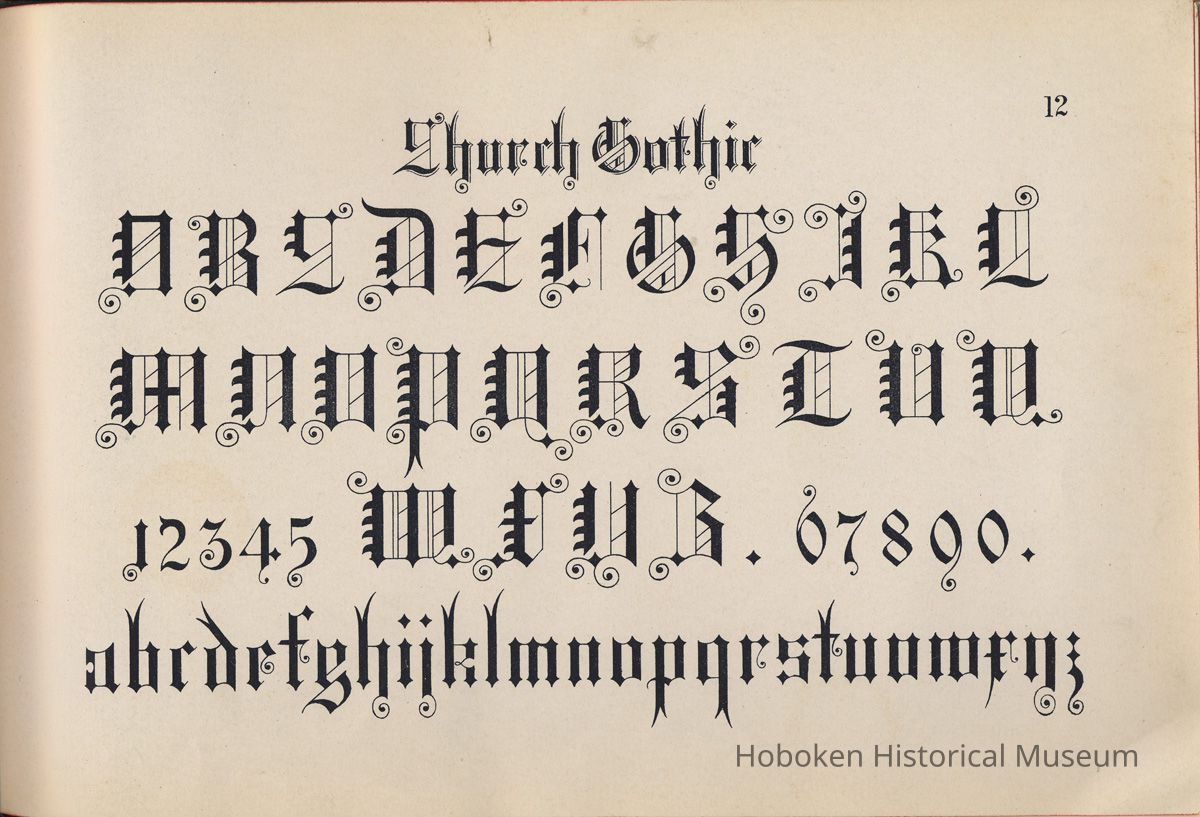 12
Church Gothic
ABCDEFGHIKL
MNOPQRSTUV
12345 WXYZ. 67890.
abcdefghijklmnopqrstuvwxyz
Hoboken Historical Museum